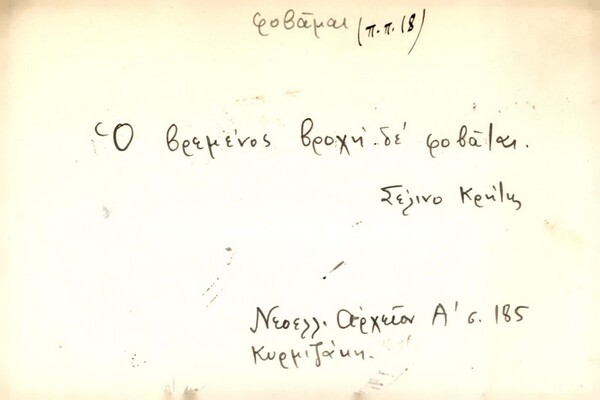 φοβᾶμαι (π.π. 18)
Ὁ βρεμένος βροχή δέ φοβᾶται.
Σέλινο Κρήτης
Νεοελλ. Ἀρχεῖον Α' σ. 185
Κυρμιζάκη.